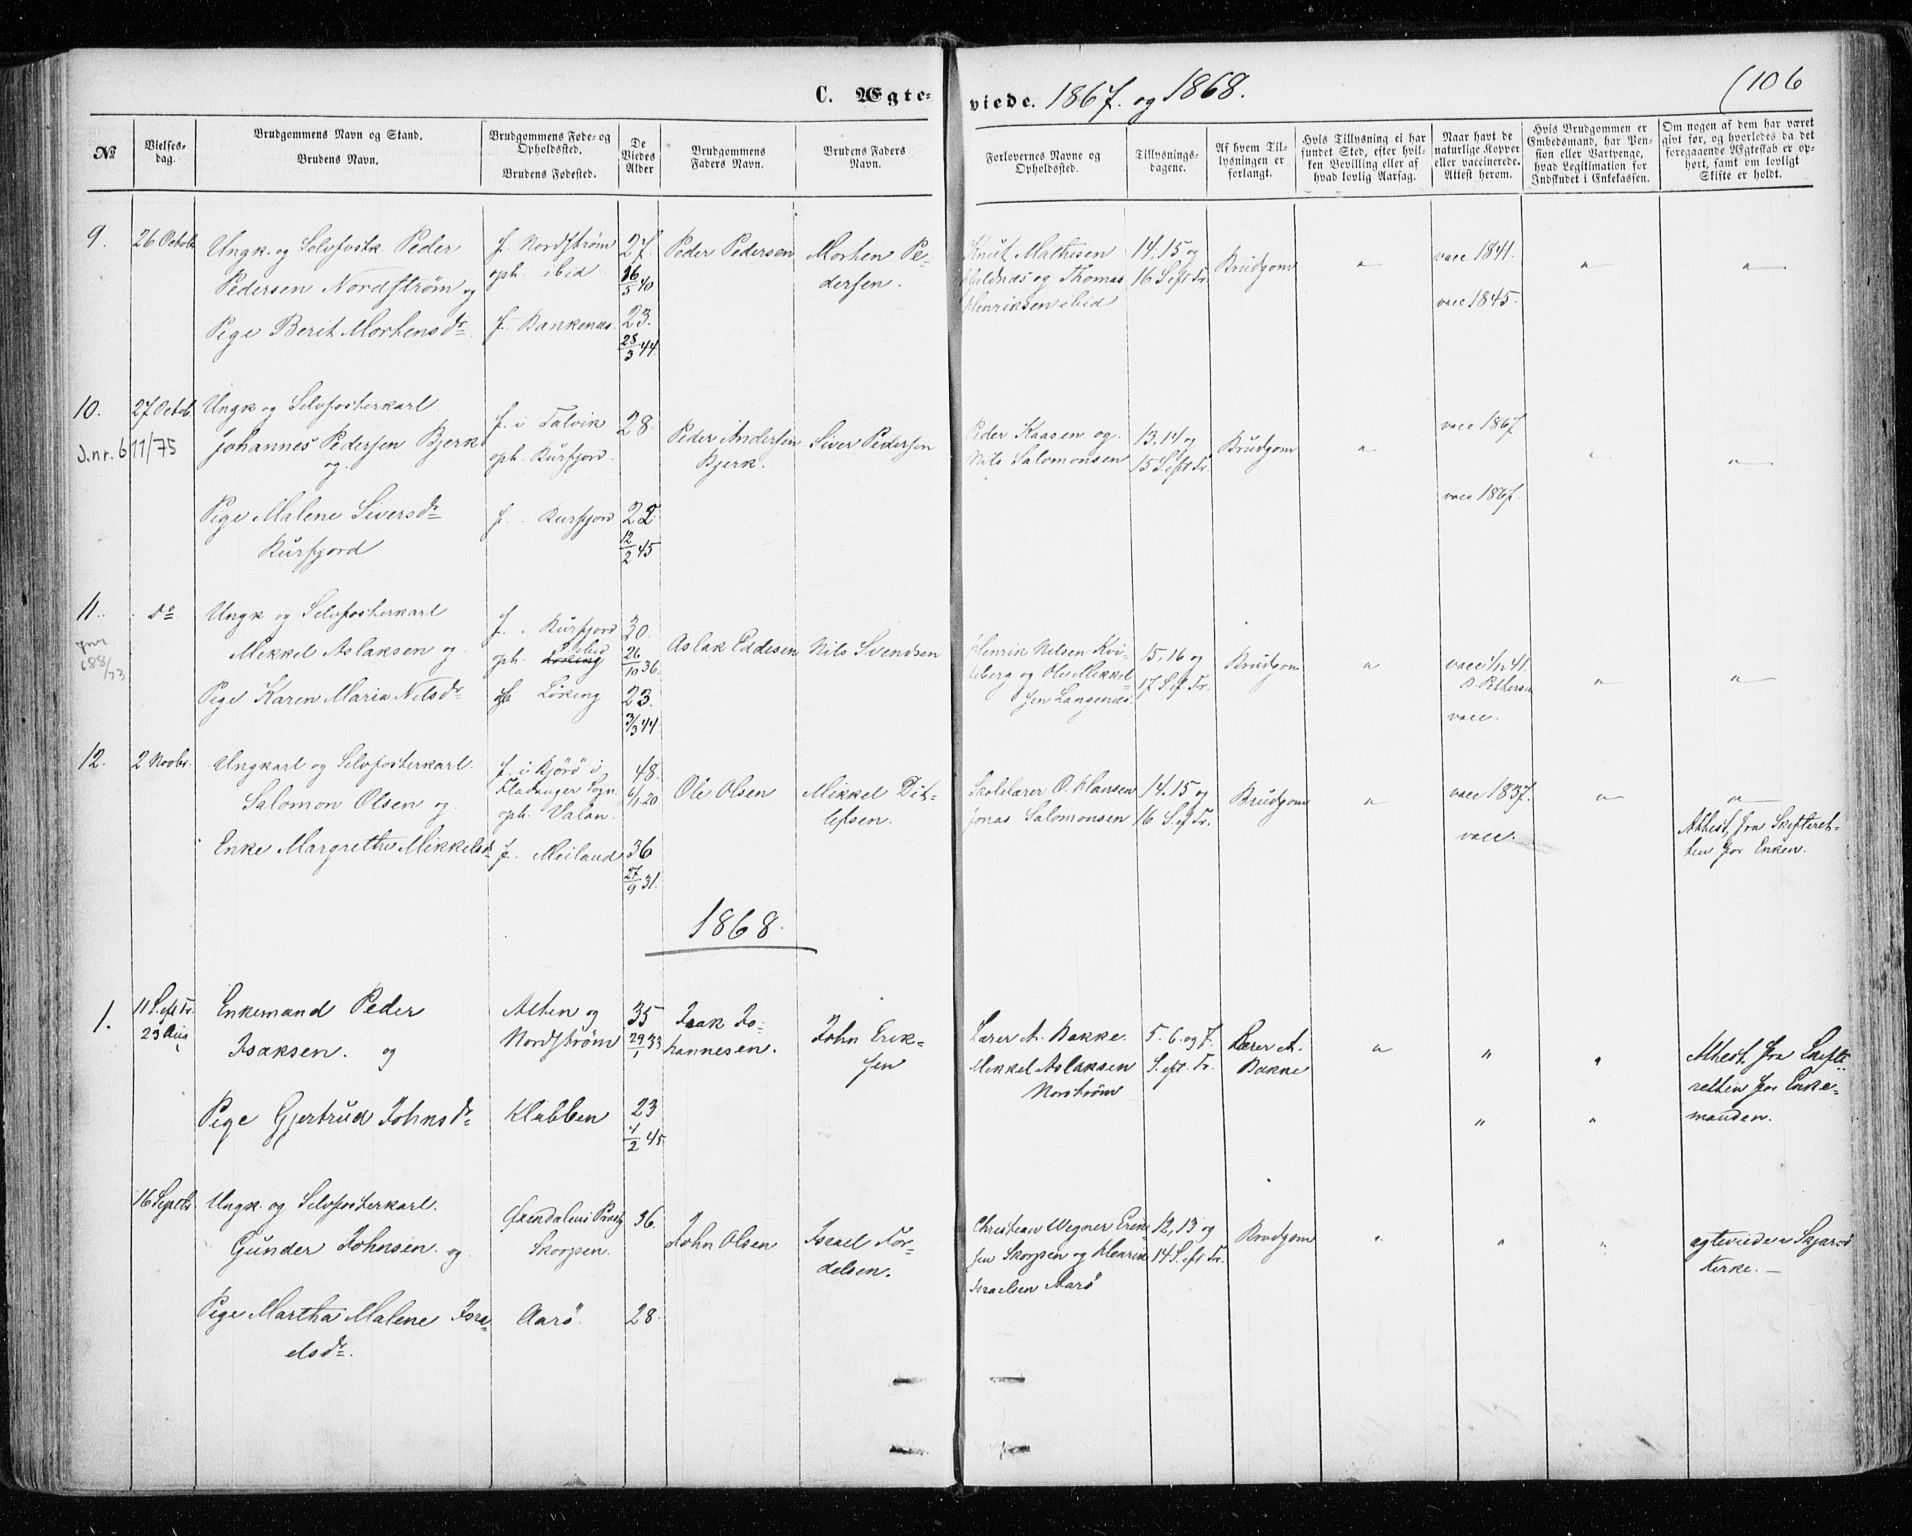 C. Ægte-
viede. 1867. og 1868.
(106
№
Vielses-
dag.
Brudgommens Navn og Stand.
Brudens Navn.
Brudgommens Føde- og
Opholdssted.
Brudens Fødested.
De
Viedes
Alder
Brudgommens
Faders Navn.
Brudens Faders
Navn.
Forlovernes Navne og
Opholdssted.
Tillysnings-
dagene.
Af hvem Til-
lysningen er
forlangt.
Hvis Tillysning ei har
fundet Sted, efter hvil-
ken Bevilling eller af
hvad lovlig Aarsag.
Naar havt de
naturlige Kopper
eller vaccinerede.
Attest herom.
Hvis Brudgommen er
Embedsmand, har Pen-
sion eller Vartpenge,
hvad Legitimation for
Indskudet i Enkekassen.
Om nogen af dem har været
gift før, og hvorledes da det
foregaaende Ægteskab er op-
hørt, samt om lovligt
Skifte er holdt.
9.
26 Octob
Ungk. og Selvfostk Peder
Pedersen Nordstrøm og
Pige Berit Mortensdr
f. Nordstrøm
oph. ibid.
f. Bankenæs.
27.
16/5 40
23.
28/3 44
Peder Pedersen
Morten Pe-
dersen.
Knut Mathisen
og Thomas
Henriksen ibid
14. 15 og
16 S. eft Tr.
Brudgom
"
vacc 1841.
vacc 1845.
"
"
10.
J.nr. 611/75
27 Octob
Ungk og Selvfosterkarl
Johannes Pedersen Bjerk
og
Pige Malene Siversdr
Kurfjord
f. i Talvik
oph. Kurfjord.
f. Kurfjord
28
22
12/2 45
Peder Andersen
Bjerk.
Siver Pedersen
Peder Kaasen og
Nils Salomonsen
13. 14 og
15 S. eft Tr.
Brudgom
"
vacc 1867
vacc 1867.
"
"
11.
jnr
688/73
do
Ungk og Selvfosterkarl
Mikkel Aslaksen og
Pige Karen Maria Nilsdr
f. Kurfjord
oph. ibid
f. Løking
30.
26/10 36.
23.
3/3 44
Aslak Eddesen
Nils Svendsen
Henrik Nilsen Kvi-
teberg og Ole Mikkel-
sen Langenæs.
15, 16 og
17 S. eft Tr.
Brudgom
"
vacc 1/7 41
vacc.
"
"
12.
2 Novbr.
Ungkarl og Selvfosterkarl
Salomon Olsen og
Enke Margrethe Mikkelsdr
f. i Bjørø i
Fladanger Sogn
oph. Valan.
f. Meiland
48.
6/1 20
36
27/9 31.
Ole Olsen
Mikkel Dit-
lefsen.
Skolelærer O. Hansen
Jonas Salomonsen
14. 15 og
16 S. eft Tr.
Brudgom
"
vacc 1837.
vacc.
"
"
Athest fra Skifteret-
ten for Enken.
1868.
1.
11 S. eft Tr.
23 Aug
Enkemand Peder
Isaksen. og
Pige Gjertrud Johnsdr
Alten og
Nordstrøm
Klubben
35
29/1 33
23
4/2 45
Isak Jo-
hannesen.
John Erik-
sen
Lærer A. Bakke.
Mikkel Aslaksen
Norstrøm
5. 6. og 7.
S. eft. Tr.
Lærer A.
Bakke
"
"
"
"
"
Athest fra Skifte-
retten for Enke-
manden.
16 Septbr.
Ungk. og Selvfosterkarl.
Gunder Johnsen. og
Pige Martha Malene Isra-
elsdr.
Øxendalens Præstg
Skorpen.
Aarø.
36.
28.
John Olsen
Israel Tor-
delsen.
Christian Wegner Erik-
sen Skorpen og Henrik
Israelsen Aarø
12, 13 og
14 S. eft Tr.
Brudgom
"
"
"
egteviede i Skjervø
Kirke. —